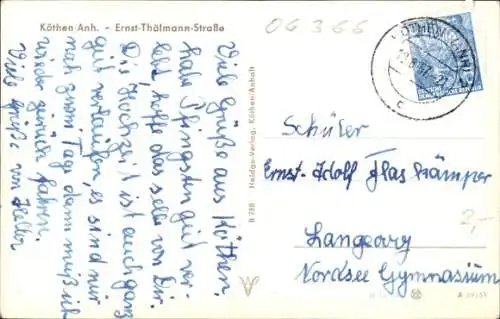 Köthen Anh. - Ernst-Thälmann-Straße
06366
Viele Grüße aus Köthen,
habe Pfingsten gut ver-
lebt, hoffe das selbe von Dir.
Die Hochzeit ist auch ganz
gut verlaufen, es sind nur
noch zwei Tage dann muß ich
wieder zurück fahren.
Viele Grüße von
B 728 Heldge-Verlag, Köthen/Anhalt
DEUTSCHE
DEMOKRATISCHE REPUBLIK
Schüler
Ernst-Adolf Flaskämper
Langeoog
Nordsee Gymnasium
2,-